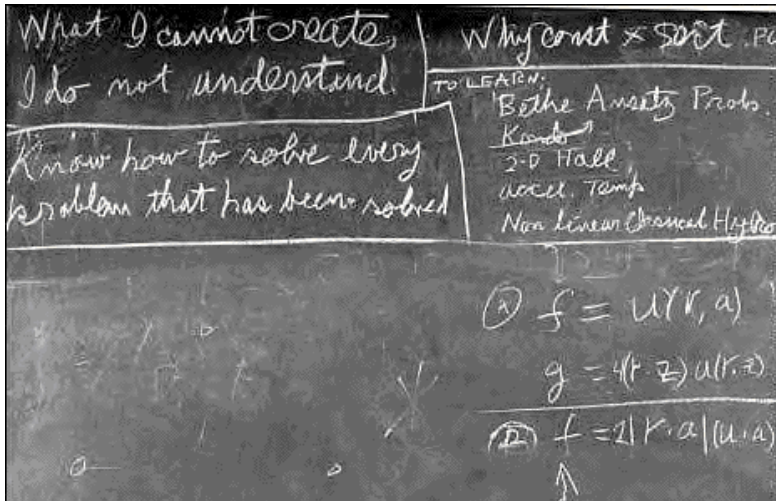 What I cannot create,
I do not understand.
Know how to solve every
problem that has been solved
Why const × sort . PO
TO LEARN:
Bethe Ansatz Probs.
Kondo
2-D Hall
accel. Temp
Non linear Classical Hydro
Ⓐ f = u(r, a)
g = 4(r · z) u(r, z)
f = 2|r · a|(u · a)